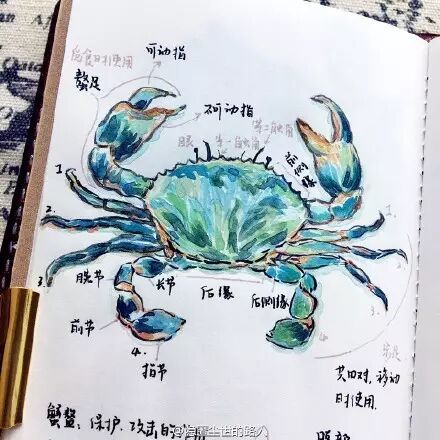 捕食时使用
可动指
螯足
不可动指
眼
第一触角
第二触角
前侧缘
1.
2.
3.
4.
腕节
长节
后缘
后侧缘
前节
指节
1.
2.
3.
4.
步足
共四对,移动
时使用.
蟹螯:保护.攻击的